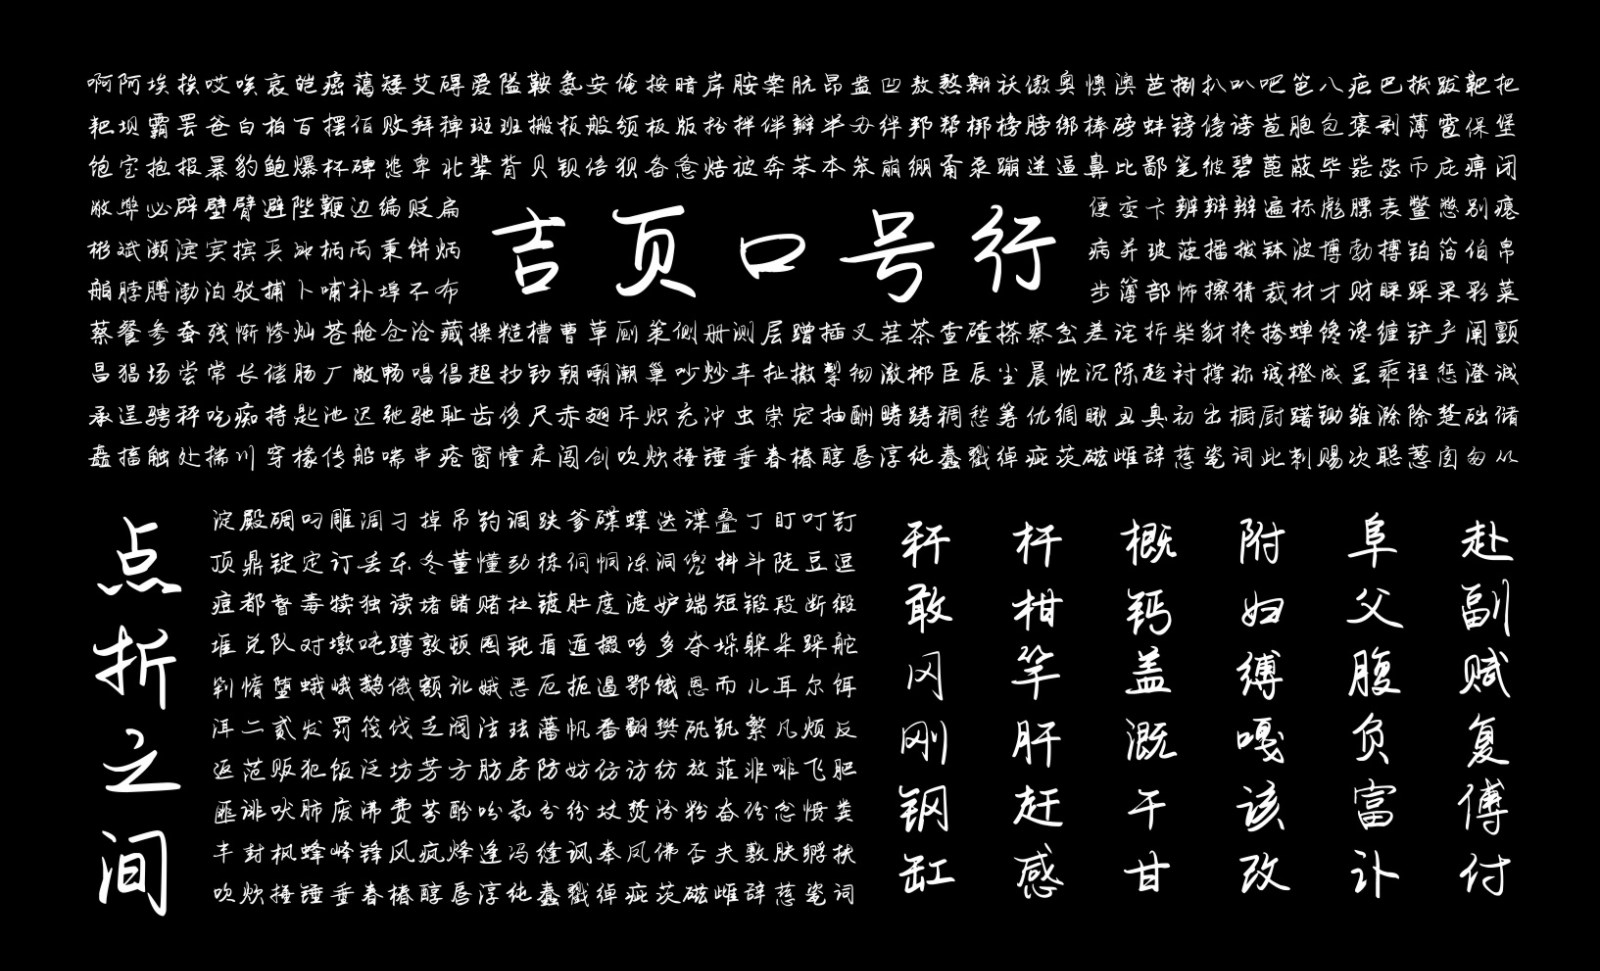 啊阿埃挨哎唉哀皑癌蔼矮艾碍爱隘鞍氨安俺按暗岸胺案肮昂盎凹敖熬翱袄傲奥懊澳芭捌扒叭吧笆八疤巴拔跋靶把
耙坝霸罢爸白柏百摆佰败拜稗斑班搬扳般颁板版扮拌伴瓣半办绊邦帮梆榜膀绑棒磅蚌镑傍谤苞胞包褒剥薄雹保堡
饱宝抱报暴豹鲍爆杯碑悲卑北辈背贝钡倍狈备惫焙被奔苯本笨崩绷甭泵蹦迸逼鼻比鄙笔彼碧蓖蔽毕毙毖币庇痹闭
敝弊必辟壁臂避陛鞭边编贬扁
彬斌濒滨宾摈兵冰柄丙秉饼炳
舶脖膊渤泊驳捕卜哺补埠不布
吉页口号行
便变卞辨辩辫遍标彪膘表鳖憋别瘪
病并玻菠播拨钵波博勃搏铂箔伯帛
步簿部怖擦猜裁材才财睬踩采彩菜
蔡餐参蚕残惭惨灿苍舱仓沧藏操糙槽曹草厕策侧册测层蹭插叉茬茶查碴搽察岔差诧拆柴豺搀掺蝉馋谗缠铲产阐颤
昌猖场尝常长偿肠厂敞畅唱倡超抄钞朝嘲潮巢吵炒车扯撤掣彻澈郴臣辰尘晨忱沉陈趁衬撑称城橙成呈乘程惩澄诚
承逞骋秤吃痴持匙池迟弛驰耻齿侈尺赤翅斥炽充冲虫崇宠抽酬畴踌稠愁筹仇绸瞅丑臭初出橱厨躇锄雏滁除楚础储
矗搐触处揣川穿椽传船喘串疮窗幢床闯创吹炊捶锤垂春椿醇唇淳纯蠢戳绰疵茨磁雌辞慈瓷词此刺赐次聪葱囱匆从
点折之间
淀殿碉叼雕凋刁掉吊钓调跌爹碟蝶迭谍叠丁盯叮钉
顶鼎锭定订丢东冬董懂动栋侗恫冻洞兜抖斗陡豆逗
痘都督毒犊独读堵睹赌杜镀肚度渡妒端短锻段断缎
堆兑队对墩吨蹲敦顿囤钝盾遁掇哆多夺垛躲朵跺舵
剁惰堕蛾峨鹅俄额讹娥恶厄扼遏鄂饿恩而儿耳尔饵
洱二贰发罚筏伐乏阀法珐藩帆番翻樊矾钒繁凡烦反
返范贩犯饭泛坊芳方肪房防妨仿访纺放菲非啡飞肥
匪诽吠肺废沸费芬酚吩氛分纷坟焚汾粉奋份忿愤粪
丰封枫蜂峰锋风疯烽逢冯缝讽奉凤佛否夫敷肤孵扶
吹炊捶锤垂春椿醇唇淳纯蠢戳绰疵茨磁雌辞慈瓷词
秆杆概附阜赴
敢柑钙妇父副
冈竿盖缚腹赋
刚肝溉嘎负复
钢赶干该富傅
缸感甘改讣付